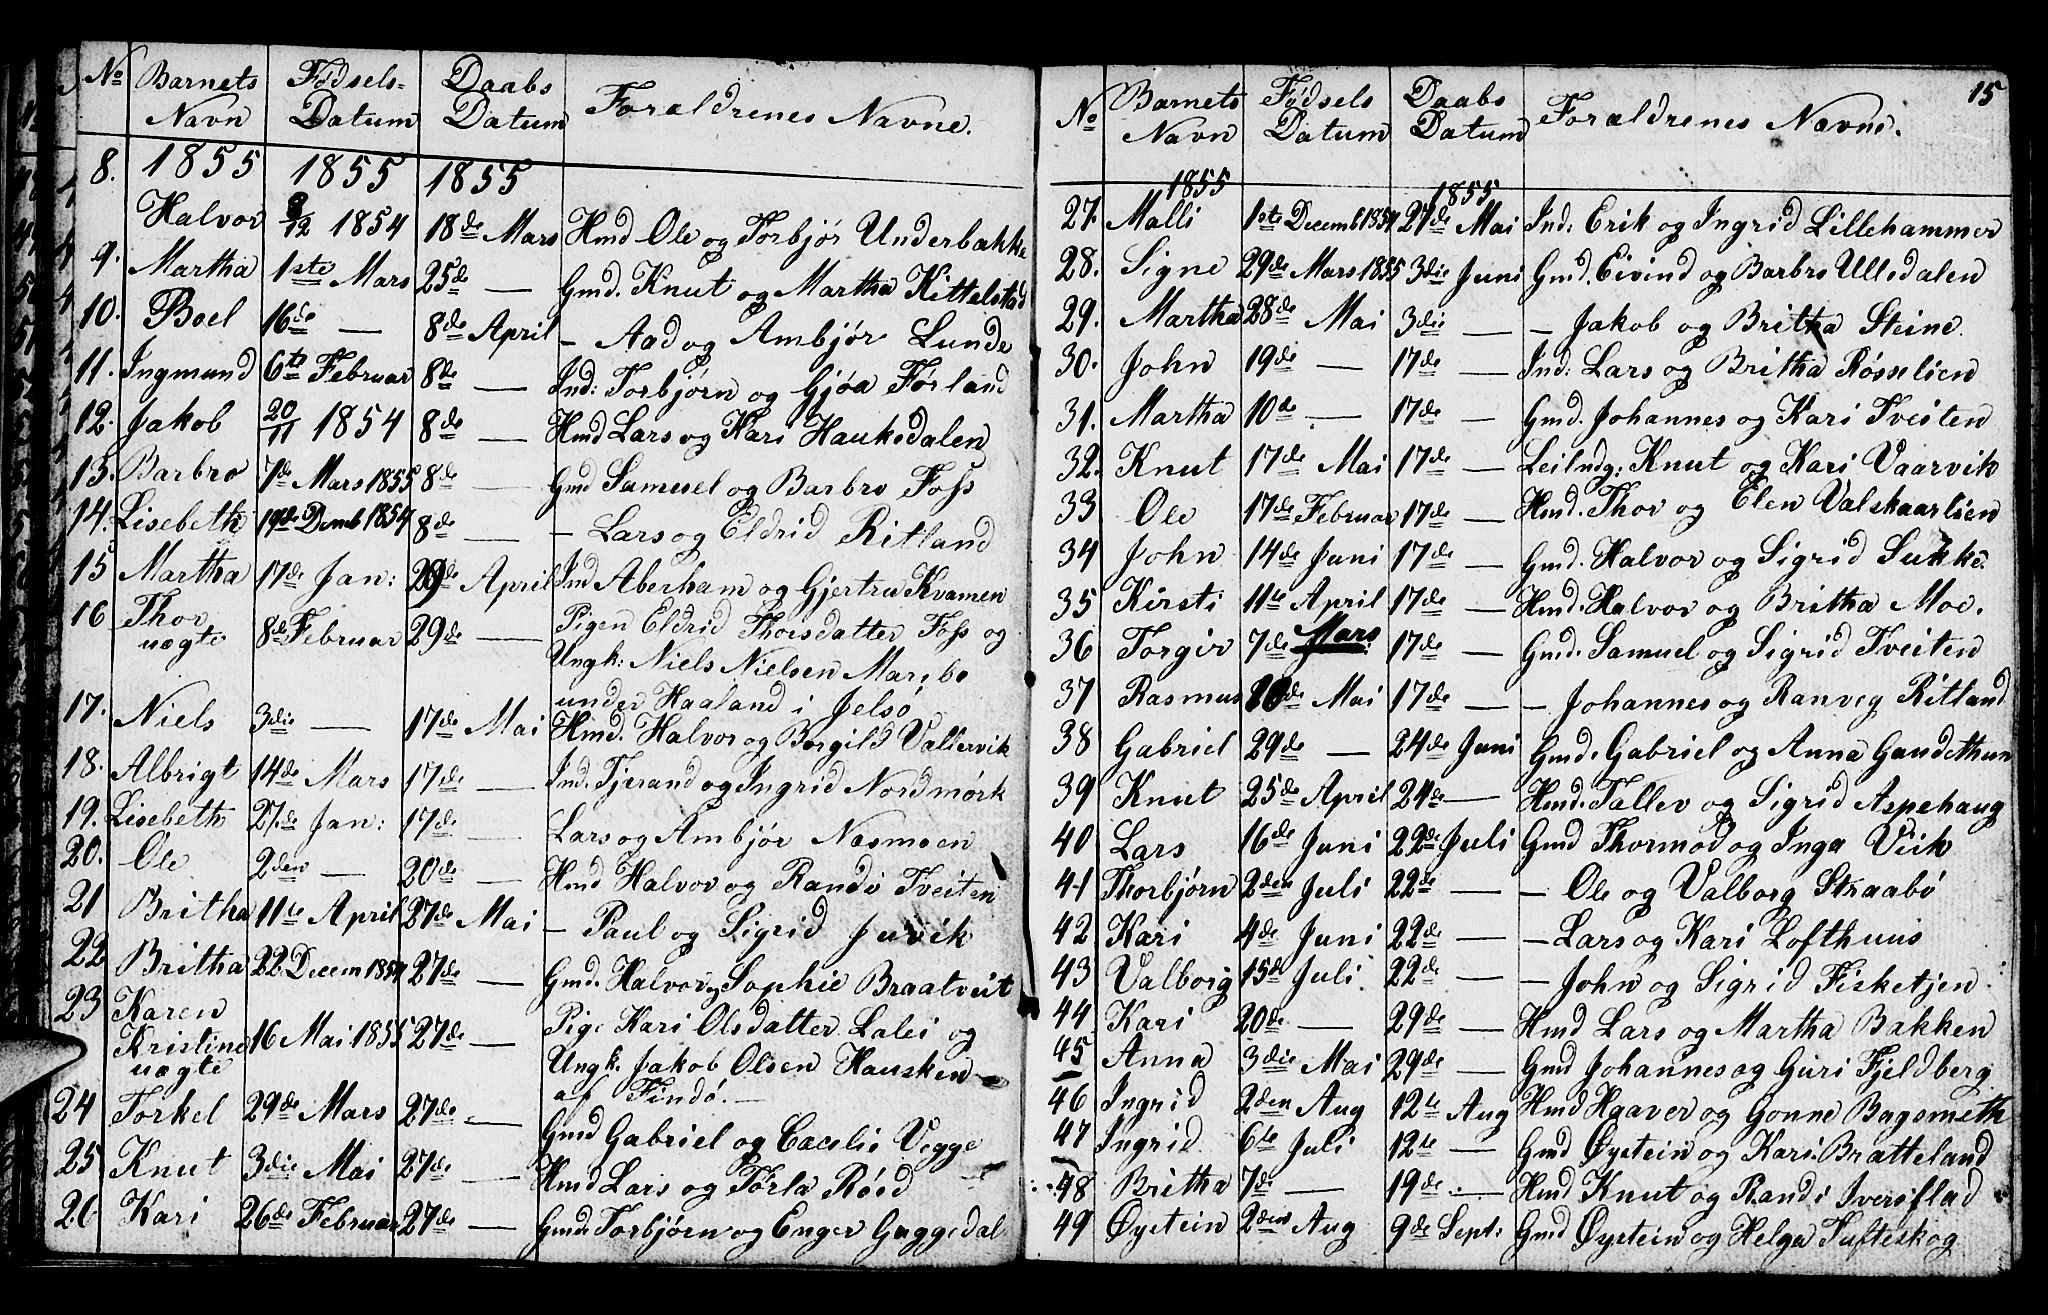 No Barnets Navn Fødsels- Datum Daabs Datum Forældrenes Navne.
8. 1855 1855 1855
Halvor 8/12 1854 18de Mars Hmd Ole og Torbjør Underbakke
9. Martha 1ste Mars 25de — Gmd. Knut og Martha Kittelstad
10. Boel 16de — 8de April — Aad og Ambjør Lunde
11. Ingmund 6te Februar 8de — Ind: Torbjørn og Gjøa Førland
12. Jakob 20/11 1854 8de — Hmd Lars og Kari Haukedalen
13. Barbro 7de Mars 1855 8de — Gmd Samuel og Barbro Foss
14. Lisebeth 19de Demb 1854 8de — — Lars og Eldrid Ritland
15 Martha 17de Jan: 29de April Ind Aberham og Gjertru Kvamen
16 Thor 8de Februar 29de — Pigen Eldrid Thorsdatter Foss og
uægte Ungk: Niels Nielsen Marebo
under Haaland i Jelsø
17. Niels 3die — 17de Mai Hmd. Halvor og Borgild Vallervik
18. Albrigt 14de Mars 17de — Ind. Tjerand og Ingrid Nordmørk
19. Lisebeth 27de Jan: 17de — Lars og Ambjør Nesmoen
20. Ole 2den — 20de — Hmd Halvor og Randi Tveiten
21 Britha 11te April 27de Mai — Paul og Sigrid Juvik
22 Britha 22 Decem 1854 27de — Gmd. Halvor og Sophie Braatveit
23 Karen Pige Kari Olsdatter Lalei og
Kristine 16 Mai 1855 27de — Ungk. Jakob Olsen Hausken
uægte af Findø. —
24 Torkel 29de Mars 27de — Gmd Gabriel og Cacelie Vegge
25 Knut 3die Mai 27de — Hmd Lars og Tørla Røed
26 Kari 26de Februar 27de — Gmd. Torbjørn og Enger Guggedal
15
No Barnets Navn Fødsels Datum Daabs Datum Forældrenes Navne.
1855 1855
27. Malli 1ste Decemb 1854 27de Mai Ind: Erik og Ingrid Lillehammer
28. Signe 29de Mars 1855 3die Juni Gmd. Eivind og Barbro Ulledalen
29. Martha 28de Mai 3die — — Jakob og Britha Steine.
30. John 19de — 17de — Ind: Lars og Britha Røsselien
31. Martha 10de — 17de — Gmd. Johannes og Kari Tveiten
32. Knut 17de Mai 17de — Leilndg: Knut og Kari Vaarvik
33 Ole 17de Februar 17de — Hmd. Thor og Elen Valskaarlien
34 John 14de Juni 17de — Gmd. Halvor og Sigrid Sukke
35 Kirsti 11te April 17de — Hmd. Halvor og Britha Moe.
36 Torgir 7de Mars 17de — Gmd. Samuel og Sigrid Tveiten
37 Rasmus 10de Mai 17de — — Johannes og Ranveg Ritland
38 Gabriel 29de — 24de Juni Gmd. Gabriel og Anna Gaudethun
39 Knut 25de April 24de — Hmd. Tallev og Sigrid Aspehaug
40 Lars 16de Juni 22de Juli Gmd Thormod og Inga Viik
41 Thorbjørn 2den Juli 22de — — Ole og Valborg Straabø
42 Kari 4de Juni 22de — — Lars og Kari Lofthuus
43 Valborg 15de Juli. 22de — — John og Sigrid Fisketjen.
44 Kari 20de — 29de — Hmd Lars og Martha Bakken
45 Anna 3die Mai 29de — Gmd Johannes og Guri Fjeldberg
46 Ingrid 2den Aug 12te Aug Hmd Haaver og Gonne Bagsmeth
47 Ingrid 6te Juli 12te — Gmd Øystein og Kari Bratteland
48 Britha 7de — 19de — Hmd Knut og Randi Iversflad
49 Øystein 2den Aug 9de Sept: Gmd Øystein og Helga Tufteskog